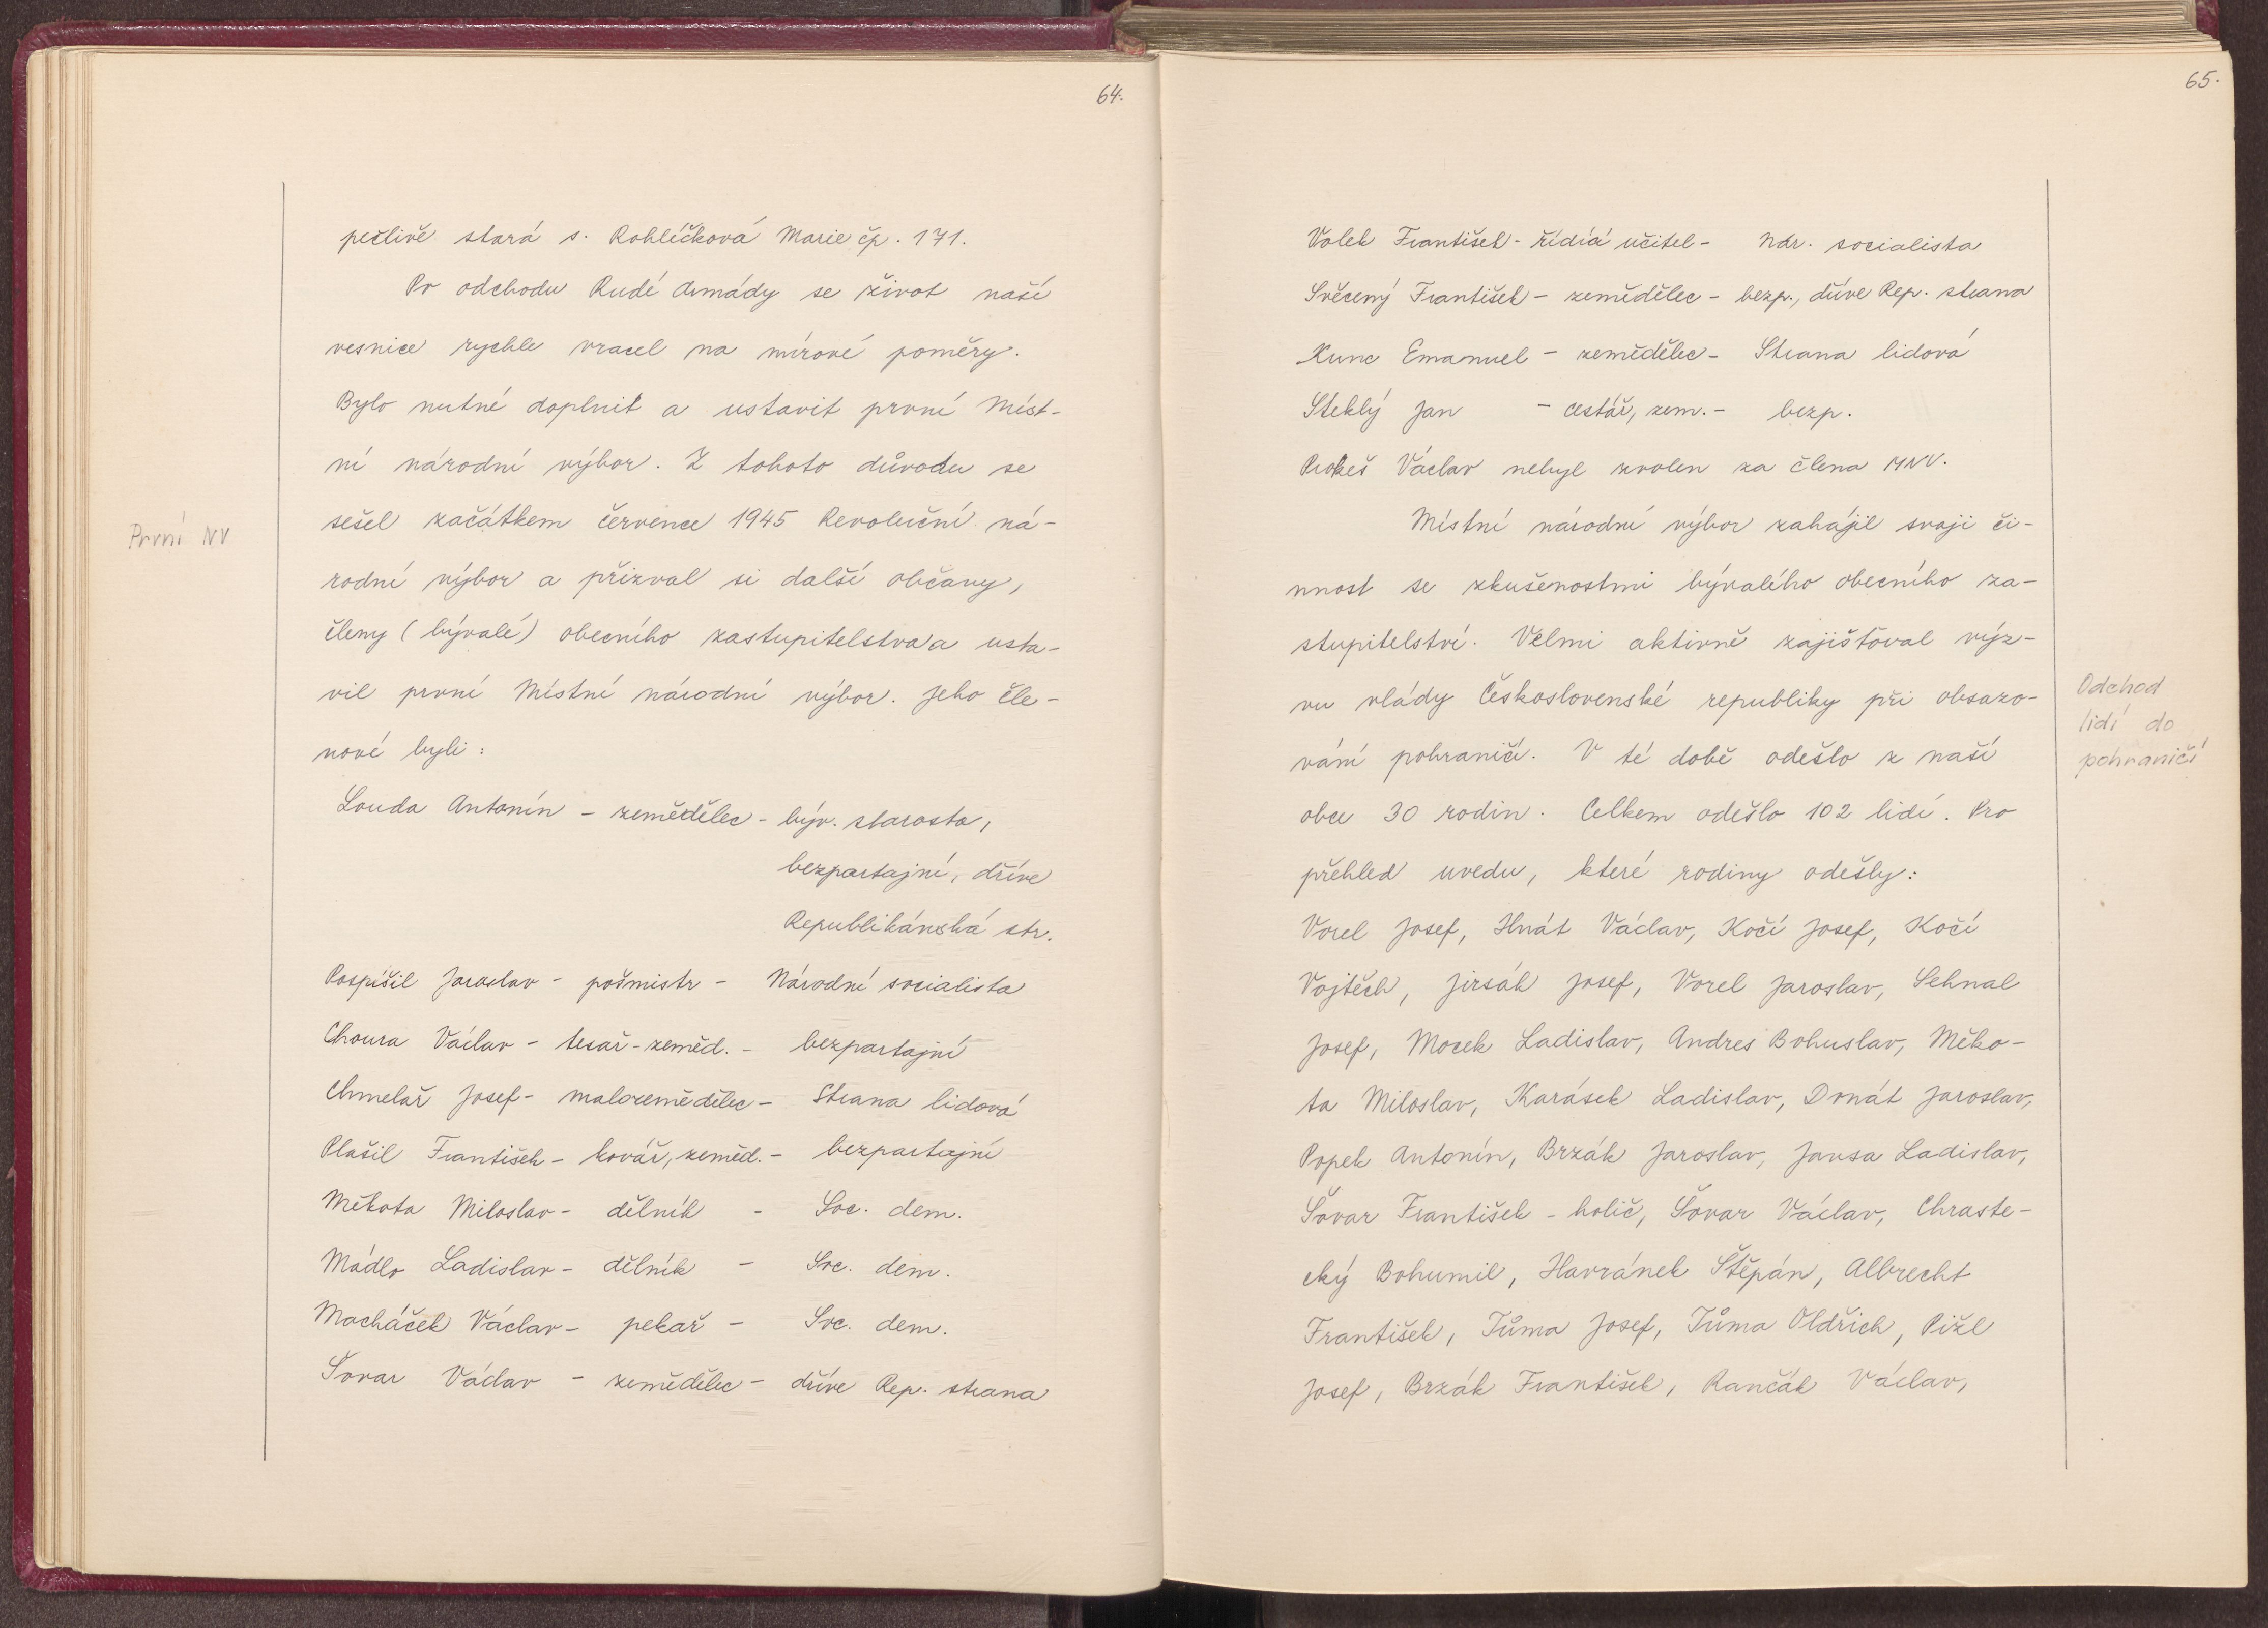 64.
pečlivě stará s. Rohlíčková Marie čp. 171.
Po odchodu Rudé Armády se život naší
vesnice rychle vracel na mírové poměry.
Bylo nutné doplnit a ustavit první Míst-
ní národní výbor. Z tohoto důvodu se
První NV
sešel začátkem července 1945 Revoluční ná-
rodní výbor a přizval si další občany,
členy (bývalé) obecního zastupitelstva a usta-
vil první Místní národní výbor. Jeho čle-
nové byli:
Louda Antonín - zemědělec - býv. starosta,
bezpartajní, dříve
Republikánská str.
Pospíšil Jaroslav - pošmistr - Národní socialista
Choura Václav - tesař-zeměd. - bezpartajní
Chmelař Josef - malozemědělec - Strana lidová
Plašil František - kovář, zeměd. - bezpartajní
Měkota Miloslav - dělník - Soc. dem.
Mádlo Ladislav - dělník - Soc. dem.
Macháček Václav - pekař - Soc. dem.
Šovar Václav - zemědělec - dříve Rep. strana
65.
Volek František - řídící učitel - Ndr. socialista
Svěcený František - zemědělec - bezp., dříve Rep. strana
Kunc Emanuel - zemědělec - Strana lidová
Steklý Jan - cestář, zem. - bezp.
Prokeš Václav nebyl zvolen za člena MNV.
Místní národní výbor zahájil svoji či-
nnost se zkušenostmi bývalého obecního za-
stupitelství. Velmi aktivně zajišťoval výz-
vu vlády Československé republiky při obsazo-
vání pohraničí. V té době odešlo z naší
Odchod
lidí do
pohraničí
obce 30 rodin. Celkem odešlo 102 lidí. Pro
přehled uvedu, které rodiny odešly:
Vorel Josef, Hnát Václav, Kočí Josef, Kočí
Vojtěch, Jirsák Josef, Vorel Jaroslav, Sehnal
Josef, Mocek Ladislav, Andres Bohuslav, Měko-
ta Miloslav, Karásek Ladislav, Donát Jaroslav,
Popek Antonín, Brzák Jaroslav, Jansa Ladislav,
Šovar František - holič, Šovar Václav, Chraste-
cký Bohumil, Havránek Štěpán, Albrecht
František, Tůma Josef, Tůma Oldřich, Pižl
Josef, Brzák František, Rančák Václav,